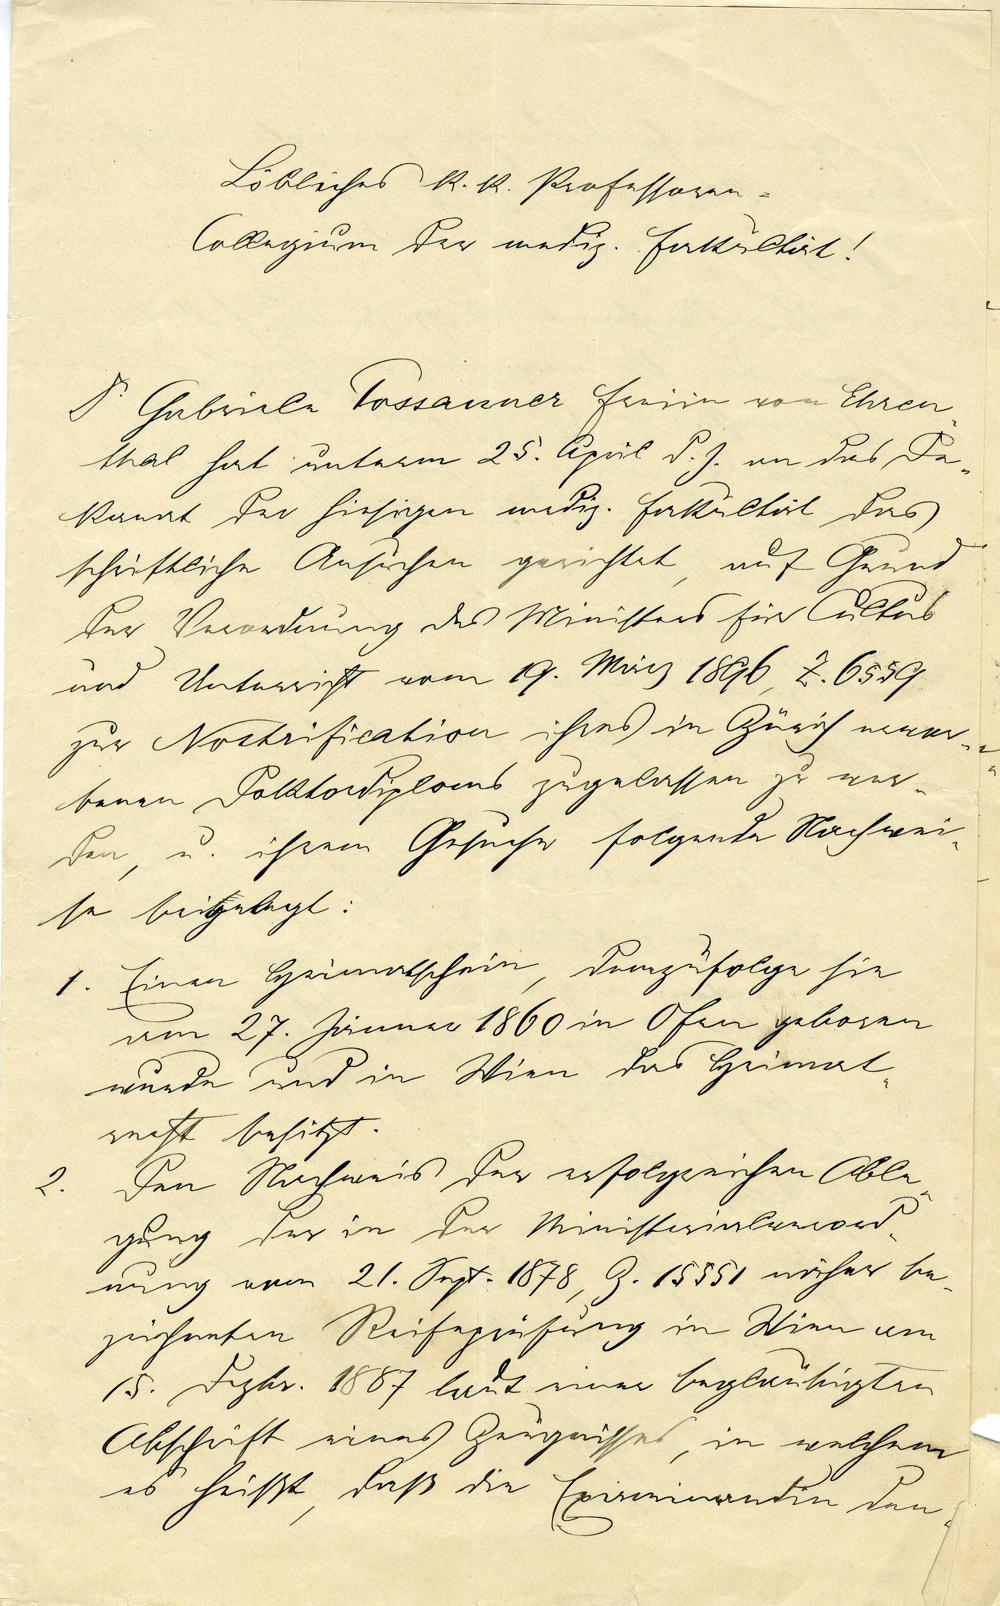 Löbliches k. k. Professoren-
Collegium der mediz. Fakultät!
Dr Gabriele Possanner Freiin von Ehren-
thal hat unterm 25. April d. J. an das De-
kanat der hiesigen mediz. Fakultät das
schriftliche Ansuchen gerichtet, auf Grund
der Verordnung des Ministers für Cultus
und Unterricht vom 19. März 1896, Z. 6559
zur Nostrification ihres in Zürich erwor-
benen Doktordiploms zugelassen zu wer-
den, u. ihrem Gesuche folgende Nachwei-
se beigelegt:
1. Einen Heimatschein, demzufolge sie
am 27. Jänner 1860 in Ofen geboren
wurde und in Wien das Heimat-
recht besitzt.
2. Den Nachweis der erfolgreichen Able-
gung der in der Ministerialverord-
nung vom 21. Sept. 1878, Z. 15551 näher be-
zeichneten Reifeprüfung in Wien am
15. Dezbr. 1887 laut einer beglaubigten
Abschrift eines Zeugnisses, in welchem
es heißt, daß die Examinandin den-